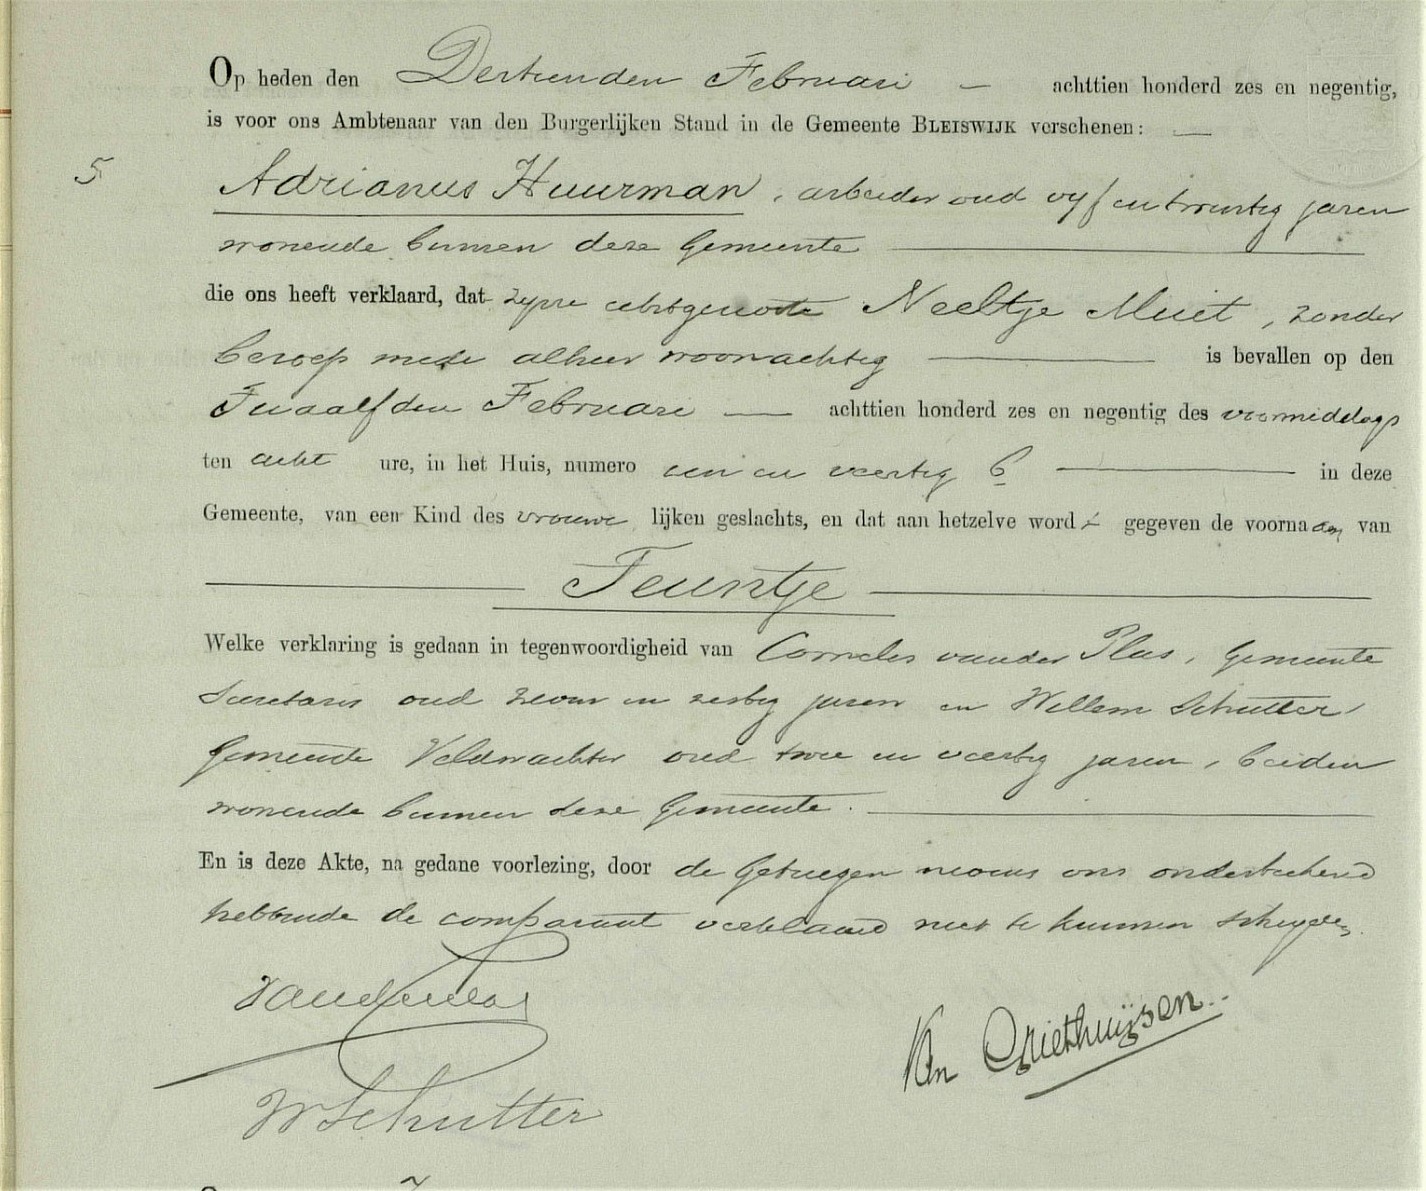 Op heden den Dertienden Februari — achttien honderd zes en negentig,
is voor ons Ambtenaar van den Burgerlijken Stand in de Gemeente BLEISWIJK verschenen: —
5 Adrianus Huurman, arbeider oud vijf en twintig jaren
wonende binnen deze Gemeente
die ons heeft verklaard, dat zijne echtgenoote Neeltje Muit, zonder
beroep mede alhier woonachtig is bevallen op den
Twaalfden Februari — achttien honderd zes en negentig des voormiddags
ten acht ure, in het Huis, numero een en veertig b in deze
Gemeente, van een Kind des vrouwe lijken geslachts, en dat aan hetzelve word t gegeven de voornaam van
Teuntje
Welke verklaring is gedaan in tegenwoordigheid van Cornelis van der Plas, Gemeente
Secretaris oud zeven en zestig jaren en Willem Schutter,
Gemeente Veldwachter oud twee en veertig jaren, beiden
wonende binnen deze Gemeente.
En is deze Akte, na gedane voorlezing, door de Getuigen nevens ons onderteekend
hebbende de comparant verklaard niet te kunnen schrijven.
Van der Plas
Van Griethuijsen
W Schutter